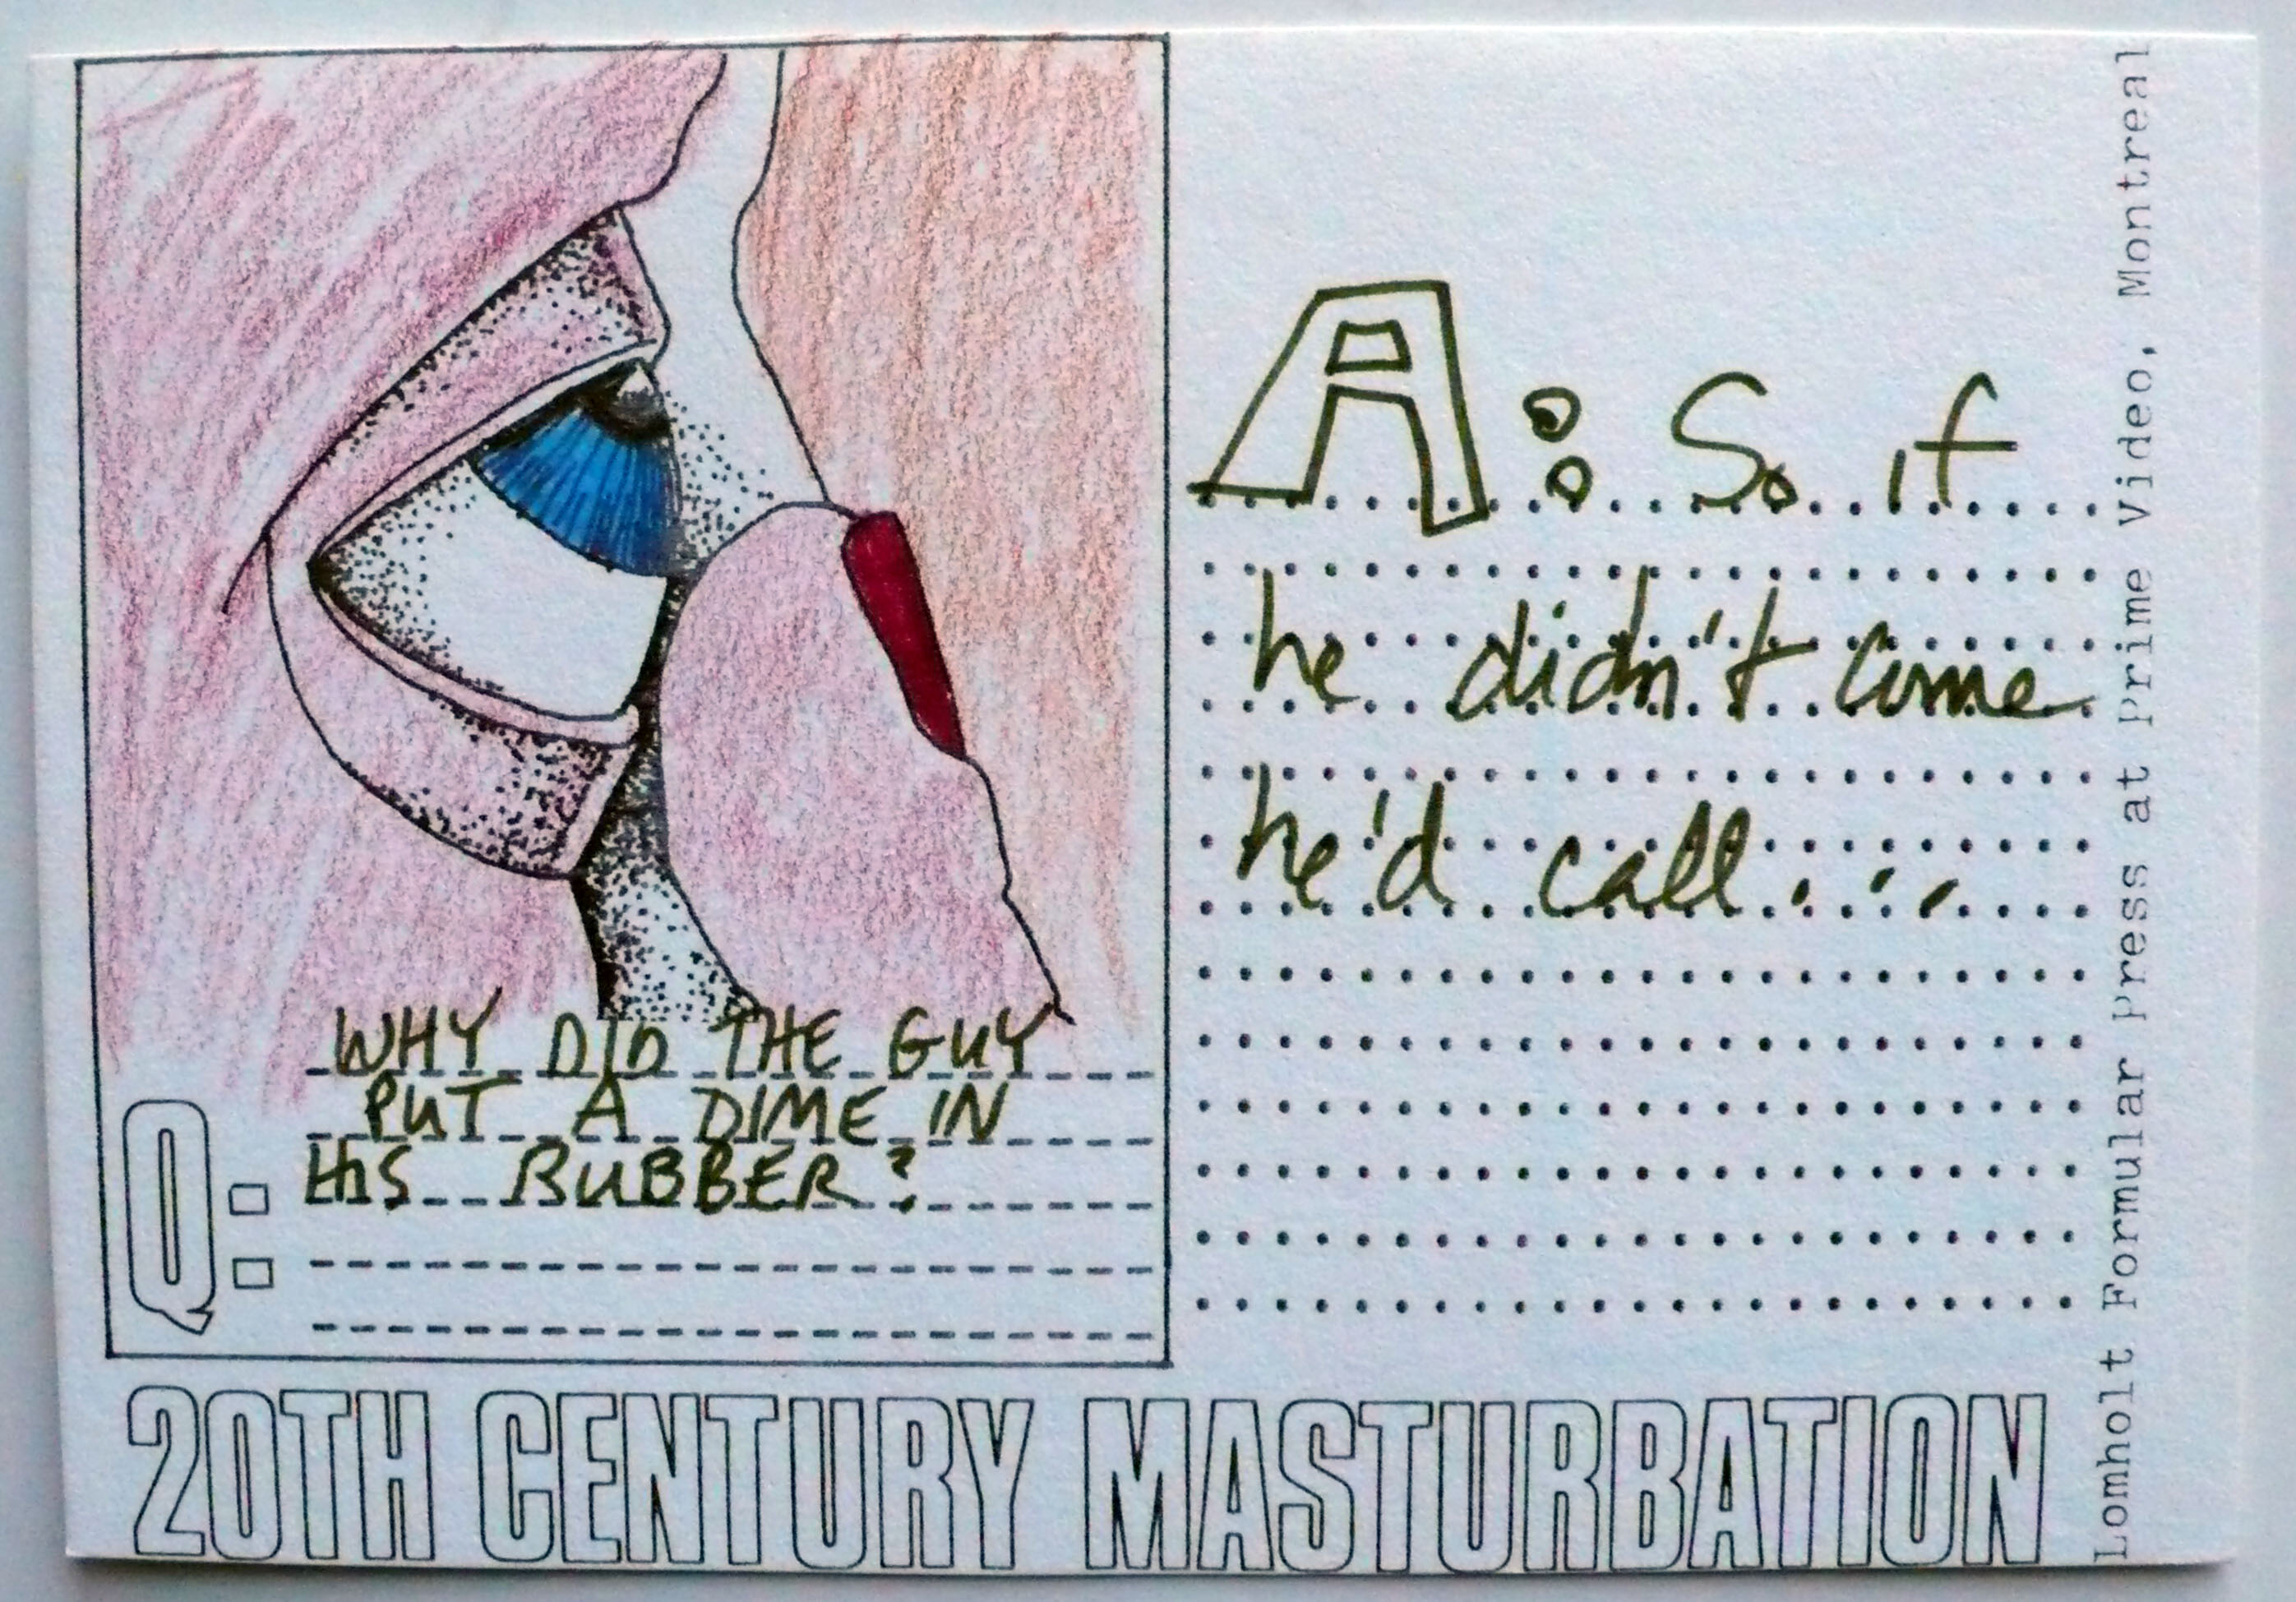 WHY DID THE GUY
PUT A DIME IN
Q: HIS RUBBER?
A: So if
he didn't come
he'd call...
20TH CENTURY MASTURBATION
Lomholt Formular Press at Prime Video, Montreal